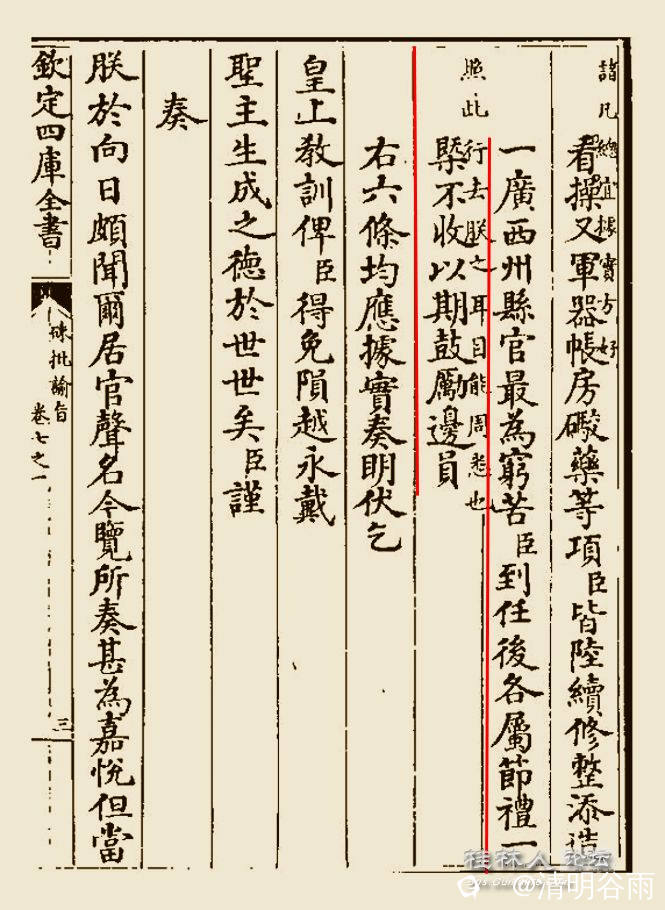 諸凡總宜據實方好
看操又軍器帳房礟藥等項臣皆陸續修整添造
一廣西州縣官最為窮苦臣到任後各屬節禮一
照此行去朕之耳目能周悉也
槩不收以期鼓勵邊員
右六條均應據實奏明伏乞
皇上教訓俾臣得免隕越永戴
聖主生成之德於世世矣臣謹
奏
朕於向日頗聞爾居官聲名今覽所奏甚為嘉悅但當
欽定四庫全書
硃批諭旨
卷七之一
三
桂林人论坛
@清明谷雨